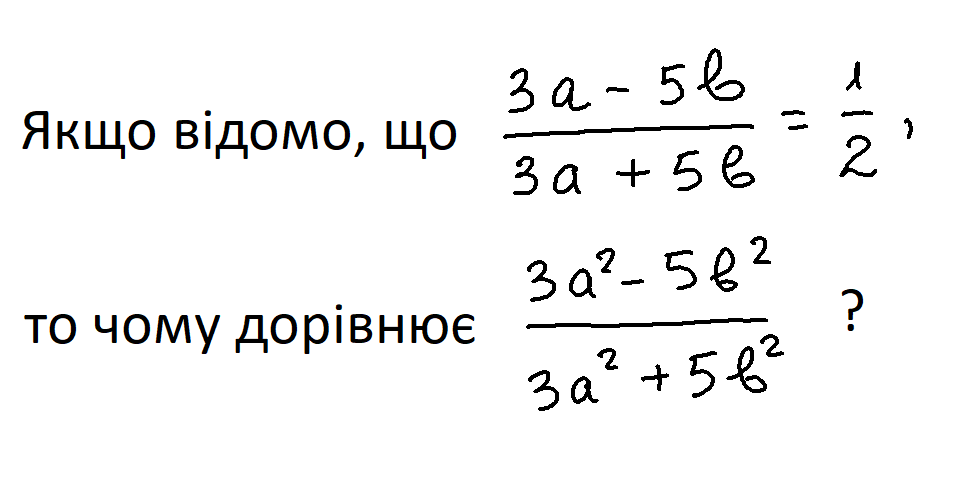 Якщо відомо, що (3a - 5b)/(3a + 5b) = 1/2,
то чому дорівнює (3a² - 5b²)/(3a² + 5b²) ?